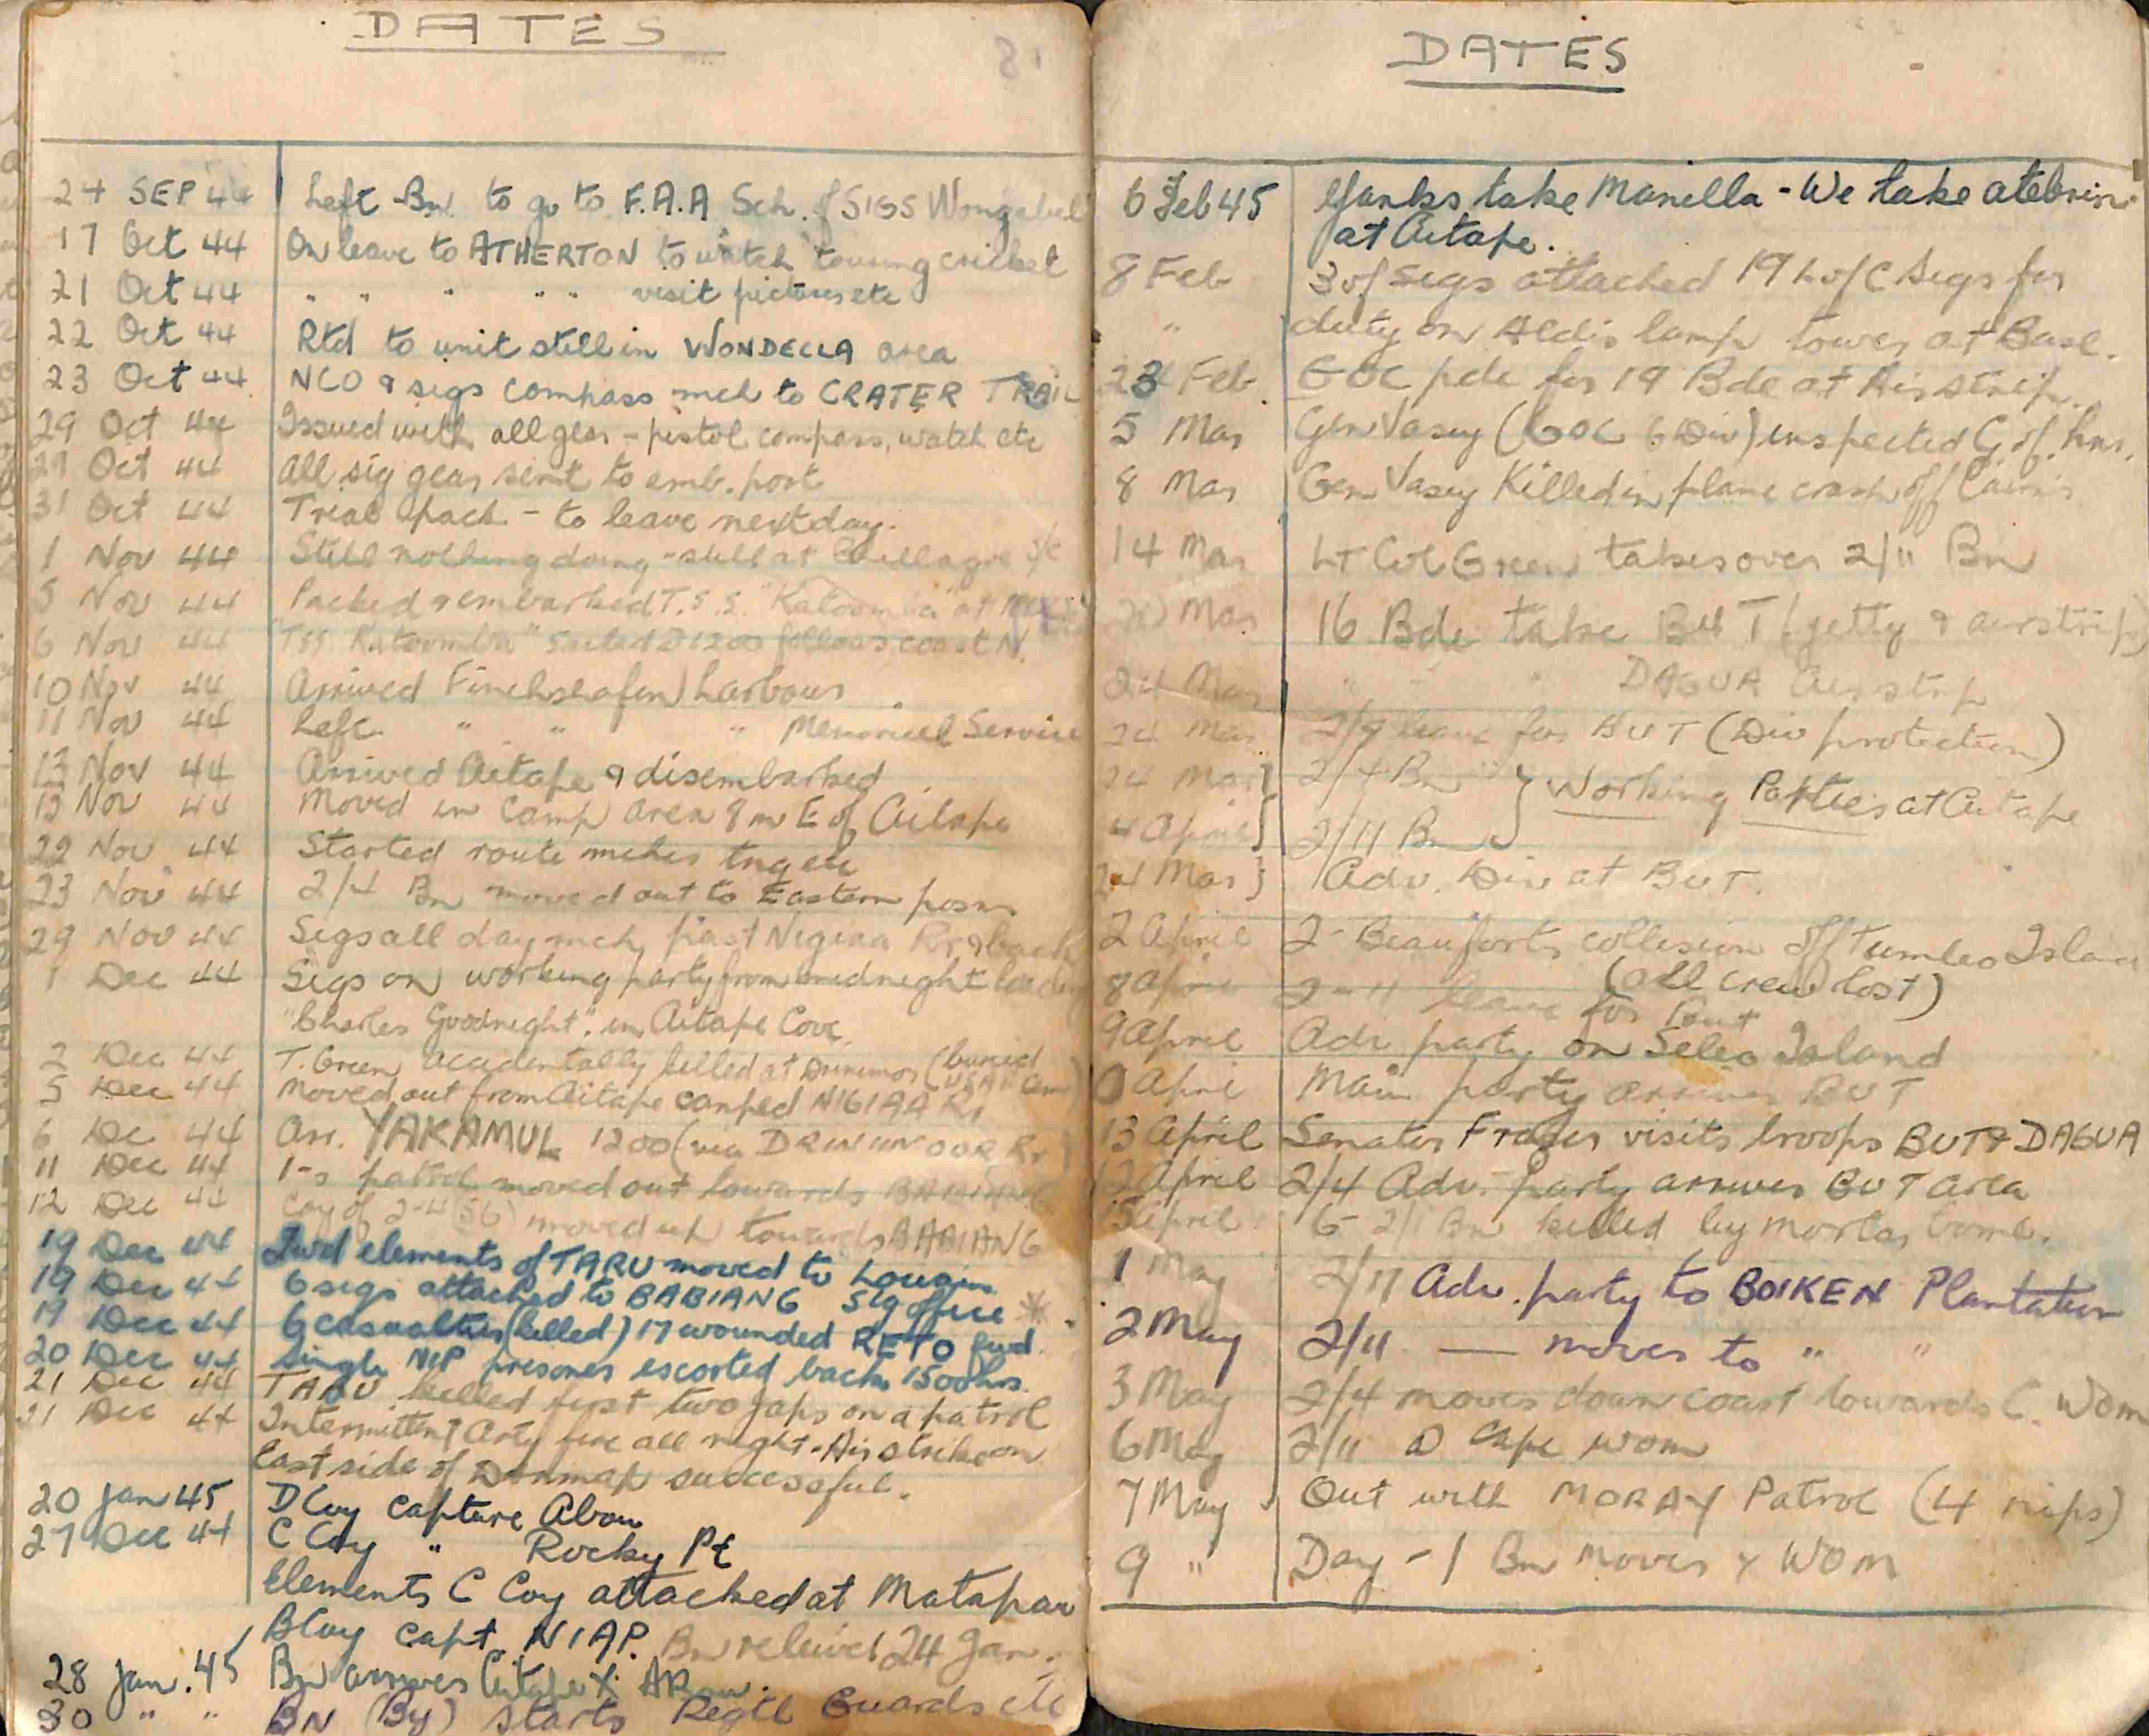 DATES
81
24 SEP 44 Left Bn to go to F.A.A Sch. of SIGS Wongabel
17 Oct 44 On leave to ATHERTON to watch touring cricket
21 Oct 44 " " " " " visit pictures etc
22 Oct 44 Rtd to unit still in WONDECLA area
23 Oct 44 NCO & sigs compass mch to CRATER TRAIL
29 Oct 44 Issued with all gear - pistol compass, watch etc
29 Oct 44 All sig gear sent to emb. port
31 Oct 44 Trial pack - to leave next day.
1 Nov 44 Still nothing doing - still at
5 Nov 44 Packed & embarked T.S.S. "Katoomba" at
6 Nov 44 "TSS Katoomba" Sailed @ 1200 follows coast N.
10 Nov 44 Arrived Finchshafen harbour
11 Nov 44 Left " " " Memorial Service
13 Nov 44 Arrived Aitape & disembarked
13 Nov 44 Moved in camp area 8 m E of Aitape
22 Nov 44 Started route mches tng etc
23 Nov 44 2/4 Bn moved out to Eastern posns
29 Nov 44 Sigs all day mch past Nigiaa Rr & back
1 Dec 44 Sigs on working party from midnight loading
"Charles Goodnight". in Aitape Cove.
2 Dec 44 T. Green accidentally killed at (buried USA Cem)
5 Dec 44 Moved out from Aitape camped NIGIAA Rr
6 Dec 44 Arr. YAKAMUL 1200 (via DRINIUMOOR Rr)
11 Dec 44 1-s patrol moved out towards BABIANG
12 Dec 44 Coy of 2-4 moved up towards BABIANG
19 Dec 44 Fwd elements of TARU moved to
19 Dec 44 6 sigs attached to BABIANG Sig office *
19 Dec 44 6 casualties (killed) 17 wounded RETO fwd.
20 Dec 44 Single NIP prisoner escorted back 1500hrs.
21 Dec 44 TARU killed first two japs on a patrol
21 Dec 44 Intermittent Arty fire all night - Air strike on
East side of Danmap successful.
20 Jan 45 D Coy capture Abau
27 Dec 44 C Coy " Rocky Pt
Elements C Coy attacked at Matapau
B Coy capt. NIAP. Bn relieved 24 Jan.
28 Jan. 45 Bn arrives Aitape X
30 " " BN (By) starts Regtl Guards etc
DATES
6 Feb 45 Yanks take Manilla - We take atebrin
at Aitape.
8 Feb 3 of sigs attached 19 L of C Sigs for
" duty on Aldis lamp tower at Base.
23 Feb GOC pde for 19 Bde at Airstrip.
5 Mar Gen Vasey (GOC 6 Div) inspected G of hnr.
8 Mar Gen Vasey Killed in plane crash off Cairns
14 Mar Lt Col Green takes over 2/11 Bn
Mar 16 Bde take BUT (jetty & airstrip)
24 Mar " " " DAGUA Airstrip
24 Mar 2/9 leave for BUT (Div protection)
24 Mar } 2/4 Bn } Working Parties at Aitape
4 April } 2/11 Bn
24 Mar } Adv. Div at BUT.
2 April 2 - Beauforts collision off Tumleo Island
(All crew lost)
8 April 2-11 leave for But
9 April Adv party on Seleo Island
0 April Main party arrives BUT
13 April Senator Fraser visits troops BUT & DAGUA
12 April 2/4 Adv. party arrives BUT area
15 April 6 2/1 Bn killed by mortar bomb.
1 May 2/11 Adv. party to BOIKEN Plantation
2 May 2/11 — moves to " "
3 May 2/4 moves down coast towards C. Wom
6 May 2/11 @ Cape Wom
7 May Out with MORAY Patrol (4 nips)
9 " Day - 1 Bn moves X WOM